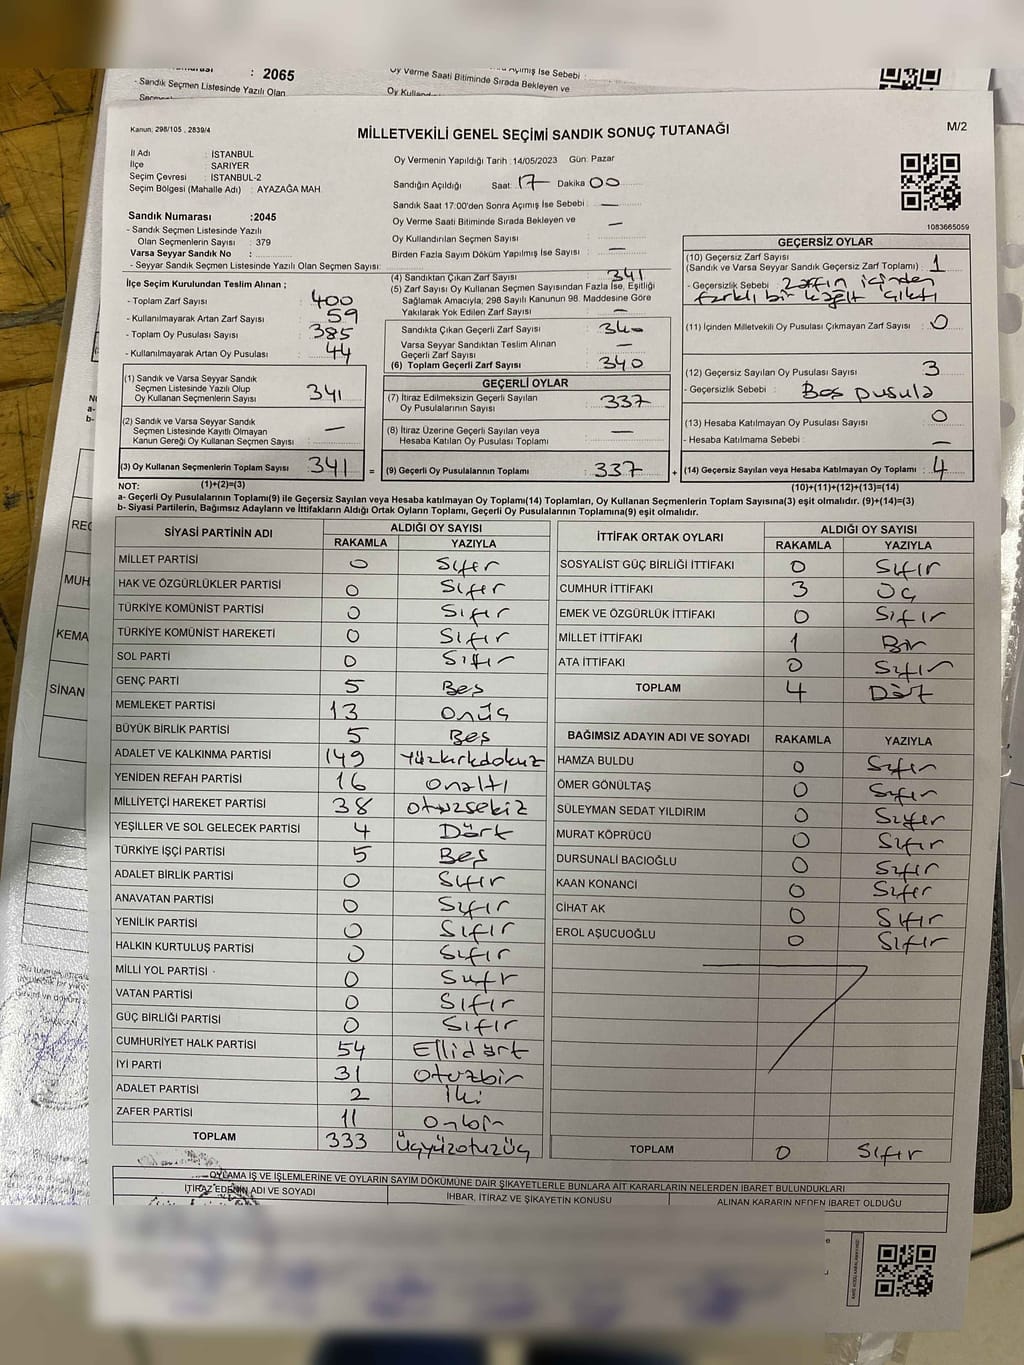 : 2065
- Sandık Seçmen Listesinde Yazılı Olan
Oy Verme Saati Bitiminde Sırada Bekleyen ve
Kanun: 298/105 , 2839/4
MİLLETVEKİLİ GENEL SEÇİMİ SANDIK SONUÇ TUTANAĞI
M/2
İl Adı : İSTANBUL
İlçe : SARIYER
Seçim Çevresi : İSTANBUL-2
Seçim Bölgesi (Mahalle Adı) : AYAZAĞA MAH.
Oy Vermenin Yapıldığı Tarih :14/05/2023 Gün: Pazar
Sandığın Açıldığı Saat 17 Dakika 00
Sandık Saat 17:00'den Sonra Açımış İse Sebebi : —
Oy Verme Saati Bitiminde Sırada Bekleyen ve
Oy Kullandırılan Seçmen Sayısı : —
Birden Fazla Sayım Döküm Yapılmış İse Sayısı : —
1083665059
Sandık Numarası :2045
- Sandık Seçmen Listesinde Yazılı
Olan Seçmenlerin Sayısı : 379
Varsa Seyyar Sandık No :
- Seyyar Sandık Seçmen Listesinde Yazılı Olan Seçmen Sayısı:
İlçe Seçim Kurulundan Teslim Alınan ;
- Toplam Zarf Sayısı : 400
- Kullanılmayarak Artan Zarf Sayısı : 59
- Toplam Oy Pusulası Sayısı : 385
- Kullanılmayarak Artan Oy Pusulası : 44
(1) Sandık ve Varsa Seyyar Sandık
Seçmen Listesinde Yazılı Olup
Oy Kullanan Seçmenlerin Sayısı : 341
(2) Sandık ve Varsa Seyyar Sandık
Seçmen Listesinde Kayıtlı Olmayan
Kanun Gereği Oy Kullanan Seçmen Sayısı : —
(3) Oy Kullanan Seçmenlerin Toplam Sayısı : 341
(4) Sandıktan Çıkan Zarf Sayısı : 341
(5) Zarf Sayısı Oy Kullanan Seçmen Sayısından Fazla İse, Eşitliği
Sağlamak Amacıyla; 298 Sayılı Kanunun 98. Maddesine Göre
Yakılarak Yok Edilen Zarf Sayısı :
Sandıkta Çıkan Geçerli Zarf Sayısı : 340
Varsa Seyyar Sandıktan Teslim Alınan
Geçerli Zarf Sayısı : —
(6) Toplam Geçerli Zarf Sayısı : 340
GEÇERLİ OYLAR
(7) İtiraz Edilmeksizin Geçerli Sayılan
Oy Pusulalarının Sayısı : 337
(8) İtiraz Üzerine Geçerli Sayılan veya
Hesaba Katılan Oy Pusulası Toplamı : —
= (9) Geçerli Oy Pusulalarının Toplamı : 337
GEÇERSİZ OYLAR
(10) Geçersiz Zarf Sayısı
(Sandık ve Varsa Seyyar Sandık Geçersiz Zarf Toplamı) : 1
- Geçersizlik Sebebi : Zarfın içinden
farklı bir kağıt çıktı
(11) İçinden Milletvekili Oy Pusulası Çıkmayan Zarf Sayısı : 0
(12) Geçersiz Sayılan Oy Pusulası Sayısı : 3
- Geçersizlik Sebebi : Boş pusula
(13) Hesaba Katılmayan Oy Pusulası Sayısı : 0
- Hesaba Katılmama Sebebi : —
+ (14) Geçersiz Sayılan veya Hesaba Katılmayan Oy Toplamı : 4
NOT: (1)+(2)=(3)
(10)+(11)+(12)+(13)=(14)
a- Geçerli Oy Pusulalarının Toplamı(9) ile Geçersiz Sayılan veya Hesaba katılmayan Oy Toplamı(14) Toplamları, Oy Kullanan Seçmenlerin Toplam Sayısına(3) eşit olmalıdır. (9)+(14)=(3)
b- Siyasi Partilerin, Bağımsız Adayların ve İttifakların Aldığı Ortak Oyların Toplamı, Geçerli Oy Pusulalarının Toplamına(9) eşit olmalıdır.
SİYASİ PARTİNİN ADI ALDIĞI OY SAYISI
RAKAMLA YAZIYLA
MİLLET PARTİSİ 0 Sıfır
HAK VE ÖZGÜRLÜKLER PARTİSİ 0 Sıfır
TÜRKİYE KOMÜNİST PARTİSİ 0 Sıfır
TÜRKİYE KOMÜNİST HAREKETİ 0 Sıfır
SOL PARTİ 0 Sıfır
GENÇ PARTİ 5 Beş
MEMLEKET PARTİSİ 13 Onüç
BÜYÜK BİRLİK PARTİSİ 5 Beş
ADALET VE KALKINMA PARTİSİ 149 Yüzkırkdokuz
YENİDEN REFAH PARTİSİ 16 Onaltı
MİLLİYETÇİ HAREKET PARTİSİ 38 Otuzsekiz
YEŞİLLER VE SOL GELECEK PARTİSİ 4 Dört
TÜRKİYE İŞÇİ PARTİSİ 5 Beş
ADALET BİRLİK PARTİSİ 0 Sıfır
ANAVATAN PARTİSİ 0 Sıfır
YENİLİK PARTİSİ 0 Sıfır
HALKIN KURTULUŞ PARTİSİ 0 Sıfır
MİLLİ YOL PARTİSİ 0 Sıfır
VATAN PARTİSİ 0 Sıfır
GÜÇ BİRLİĞİ PARTİSİ 0 Sıfır
CUMHURİYET HALK PARTİSİ 54 Ellidört
İYİ PARTİ 31 Otuzbir
ADALET PARTİSİ 2 İki
ZAFER PARTİSİ 11 Onbir
TOPLAM 333 Üçyüzotuzüç
İTTİFAK ORTAK OYLARI ALDIĞI OY SAYISI
RAKAMLA YAZIYLA
SOSYALİST GÜÇ BİRLİĞİ İTTİFAKI 0 Sıfır
CUMHUR İTTİFAKI 3 Üç
EMEK VE ÖZGÜRLÜK İTTİFAKI 0 Sıfır
MİLLET İTTİFAKI 1 Bir
ATA İTTİFAKI 0 Sıfır
TOPLAM 4 Dört
BAĞIMSIZ ADAYIN ADI VE SOYADI RAKAMLA YAZIYLA
HAMZA BULDU 0 Sıfır
ÖMER GÖNÜLTAŞ 0 Sıfır
SÜLEYMAN SEDAT YILDIRIM 0 Sıfır
MURAT KÖPRÜCÜ 0 Sıfır
DURSUNALİ BACIOĞLU 0 Sıfır
KAAN KONANCİ 0 Sıfır
CİHAT AK 0 Sıfır
EROL AŞUCUOĞLU 0 Sıfır
TOPLAM 0 Sıfır
OYLAMA İŞ VE İŞLEMLERİNE VE OYLARIN SAYIM DÖKÜMÜNE DAİR ŞİKAYETLERLE BUNLARA AİT KARARLARIN NELERDEN İBARET BULUNDUKLARI
İTİRAZ EDENİN ADI VE SOYADI İHBAR, İTİRAZ VE ŞİKAYETİN KONUSU ALINAN KARARIN NEDEN İBARET OLDUĞU
MUH
KEMA
SİNAN